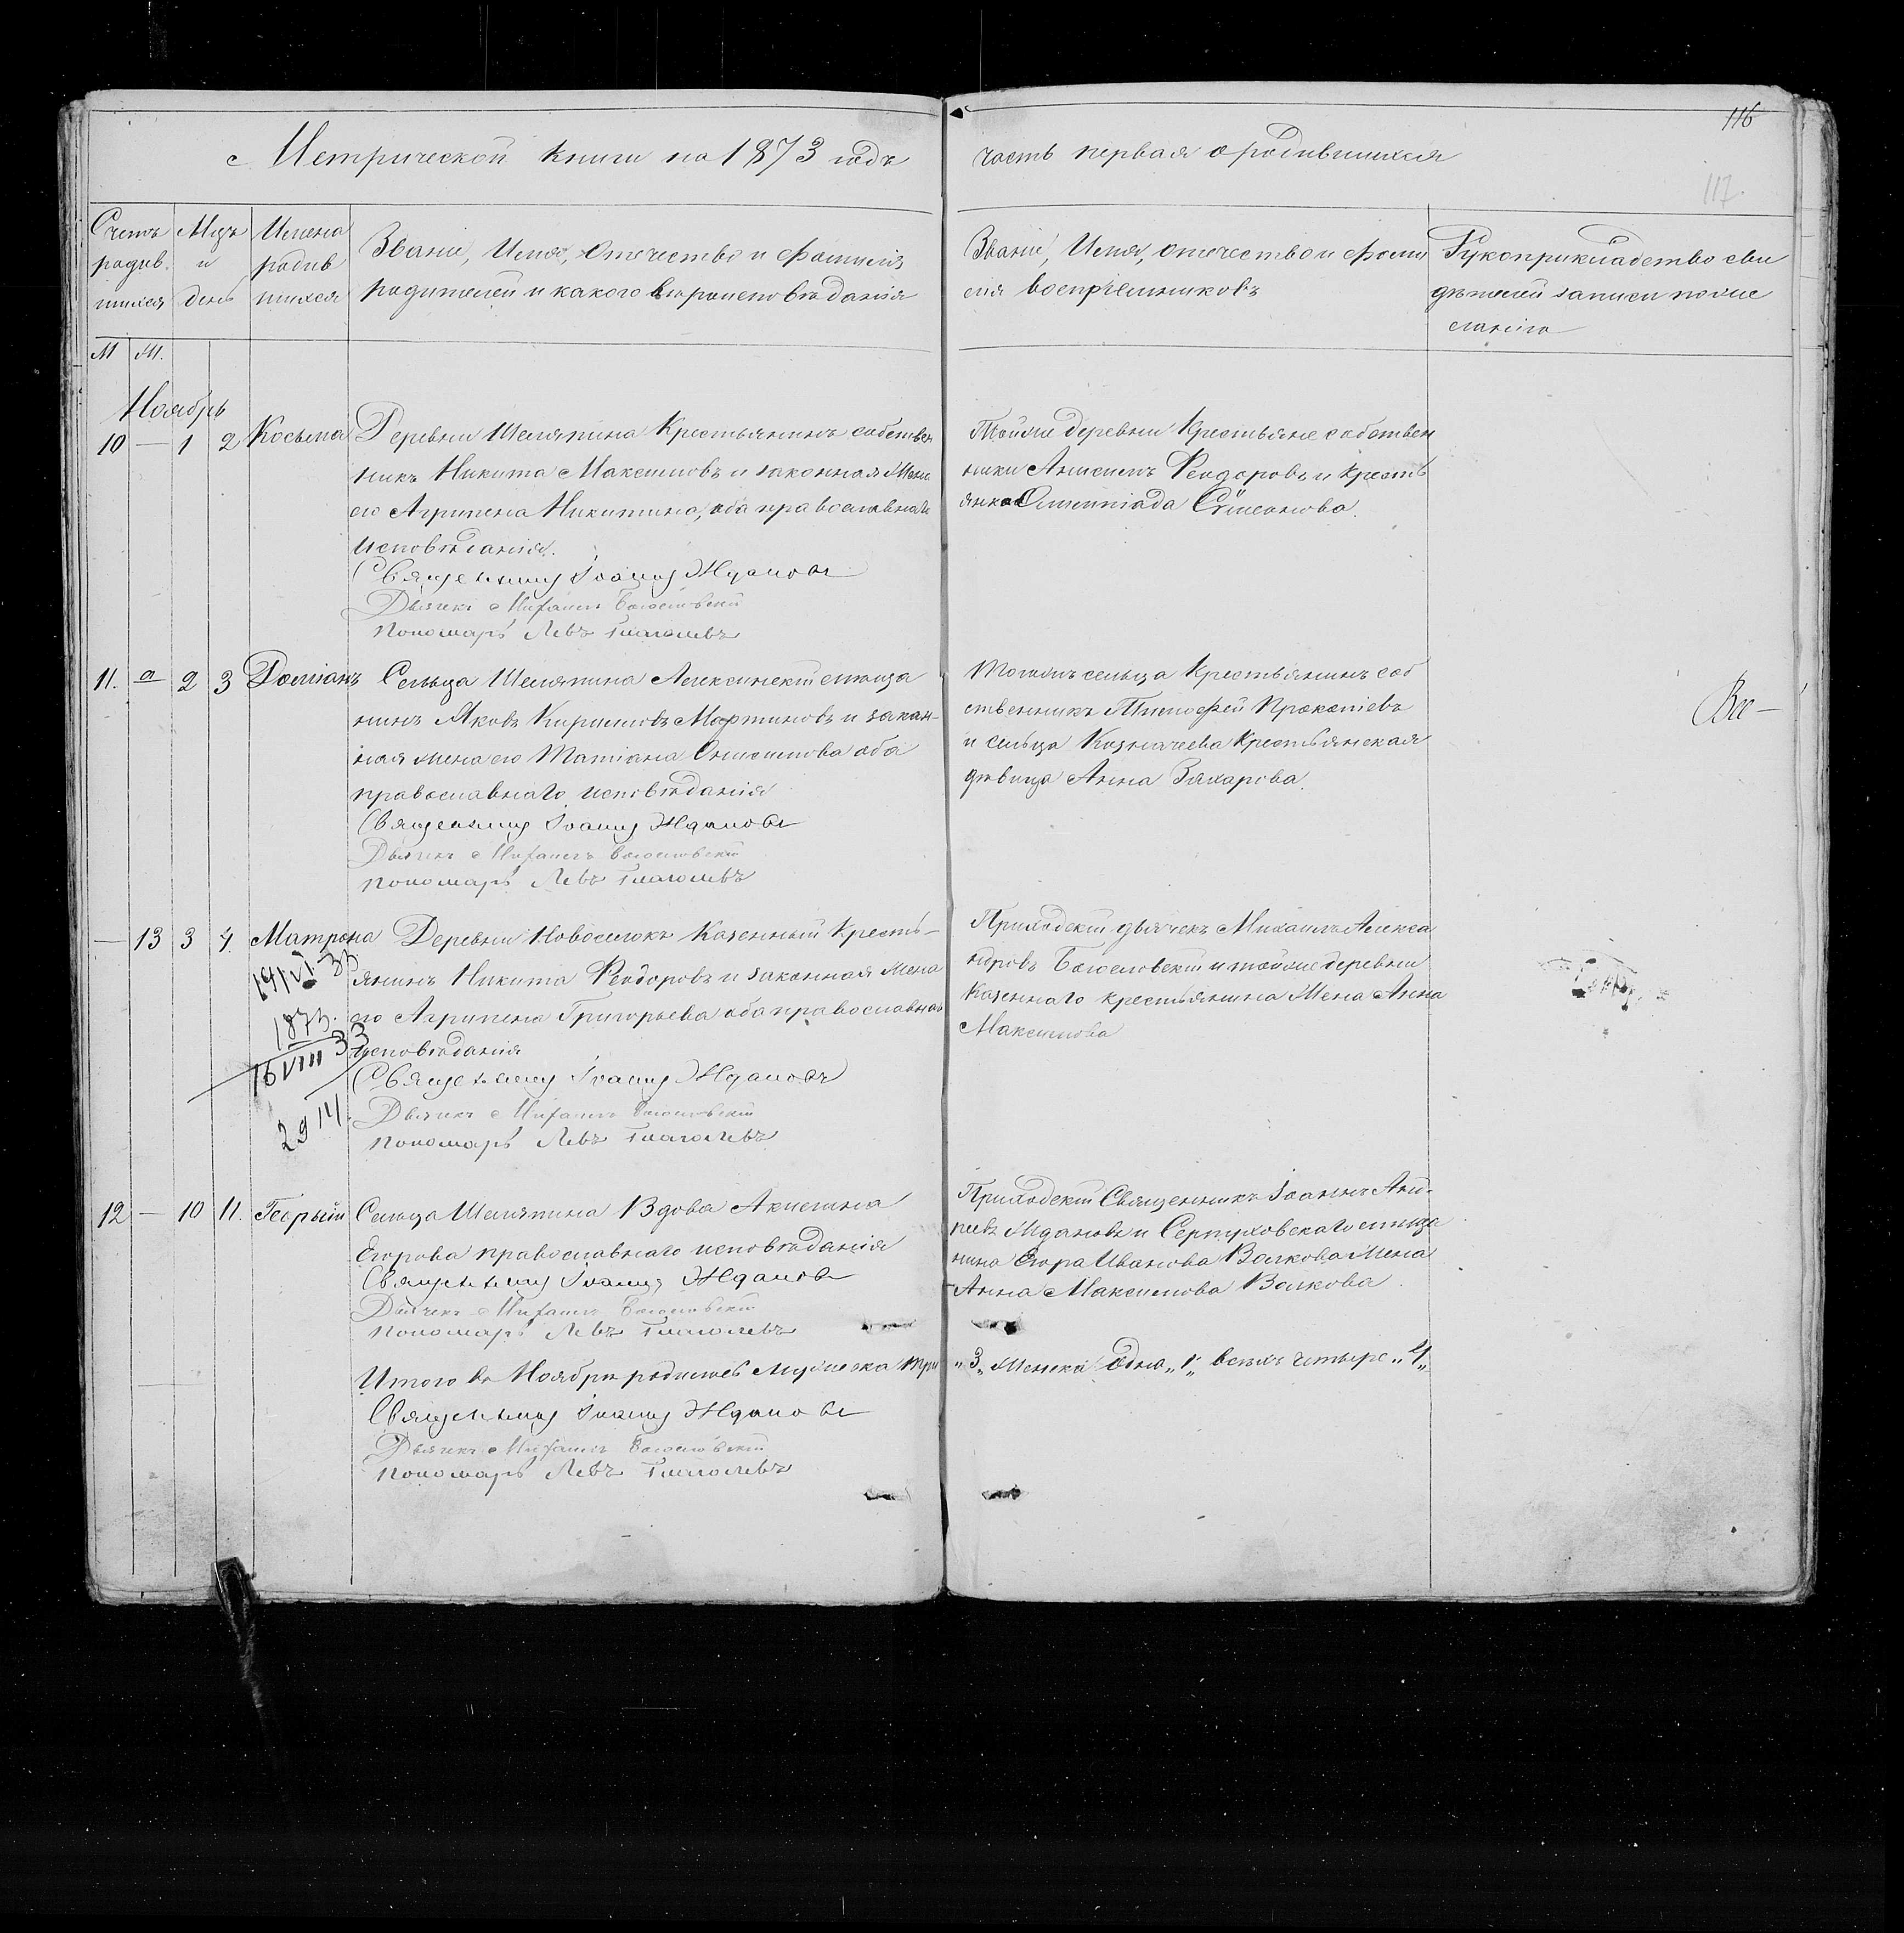 116
117.
Метрической книги на 1873 годъ
часть первая о родившихся
Счетъ родив шихся
Мцъ и день
Имена родив шихся
Званіе, Имя, Отчество и Фамилія
родителей и какого вѣроисповѣданія
Званіе, Имя, отчество и Фами
лія воспріемниковъ
Рукоприкладство сви
дѣтелей записи по же
ланію
М Ж.
Ноябрь
10 — 1 2 Косьма Деревни Шеляпина Крестьянинъ собствен
никъ Никита Максимовъ и законная Жена
его Агрипена Никитина, оба православнаго
исповѣданія.
Священникъ Іоаннъ Ждановъ
Дьячекъ Михаилъ Богословскій
Пономарь Левъ Глаголевъ
Тойже деревни Крестьяне собствен
ники Анисимъ Феодоровъ и кресть
янка Олимпіада Сѵмеонова.
11. а 2 3 Даміанъ Сельца Шеляпина Алексинскій мѣща
нинъ Яковъ Кириловъ Мартиновъ и закон-
ная жена его Татіана Онисимова оба
православнаго исповѣданія
Священникъ Іоаннъ Ждановъ
Дьячекъ Михаилъ Богословскій
Пономарь Левъ Глаголевъ
Тогожъ сельца Крестьянинъ соб
ственникъ Тимофей Прокопіевъ
и сельца Казначеева Крестьянская
дѣвица Анна Захарова.
Все —
— 13 3 4. Матрона Деревни Новоселокъ Казенный Кресть-
янинъ Никита Феодоровъ и законная Жена
его Агрипена Григорьева оба православнаго
исповѣданія
Священникъ Іоаннъ Ждановъ
Дьячекъ Михаилъ Богословскій
Пономарь Левъ Глаголевъ
1873.
16 VIII 33
2914
Приходскій дьячекъ Михаилъ Алекса
ндровъ Богословскій и тойже деревни
Казеннаго крестьянина Жена Анна
Максимова
12 — 10 11. Георгій Сельца Шеляпина Вдова Акилина
Егорова православнаго исповѣданія
Священникъ Іоаннъ Ждановъ
Дьячекъ Михаилъ Богословскій
Пономарь Левъ Глаголевъ
Приходскій Священникъ Іоаннъ Анд-
реевъ Ждановъ и Серпуховскаго мѣща
нина Егора Иванова Волкова Жена
Анна Максимова Волкова.
Итого въ Ноябрѣ родилось мужеска три
„3„ Женска одна „1„ всѣхъ четыре „4„
Священникъ Іоаннъ Ждановъ
Дьячекъ Михаилъ Богословскій
Пономарь Левъ Глаголевъ